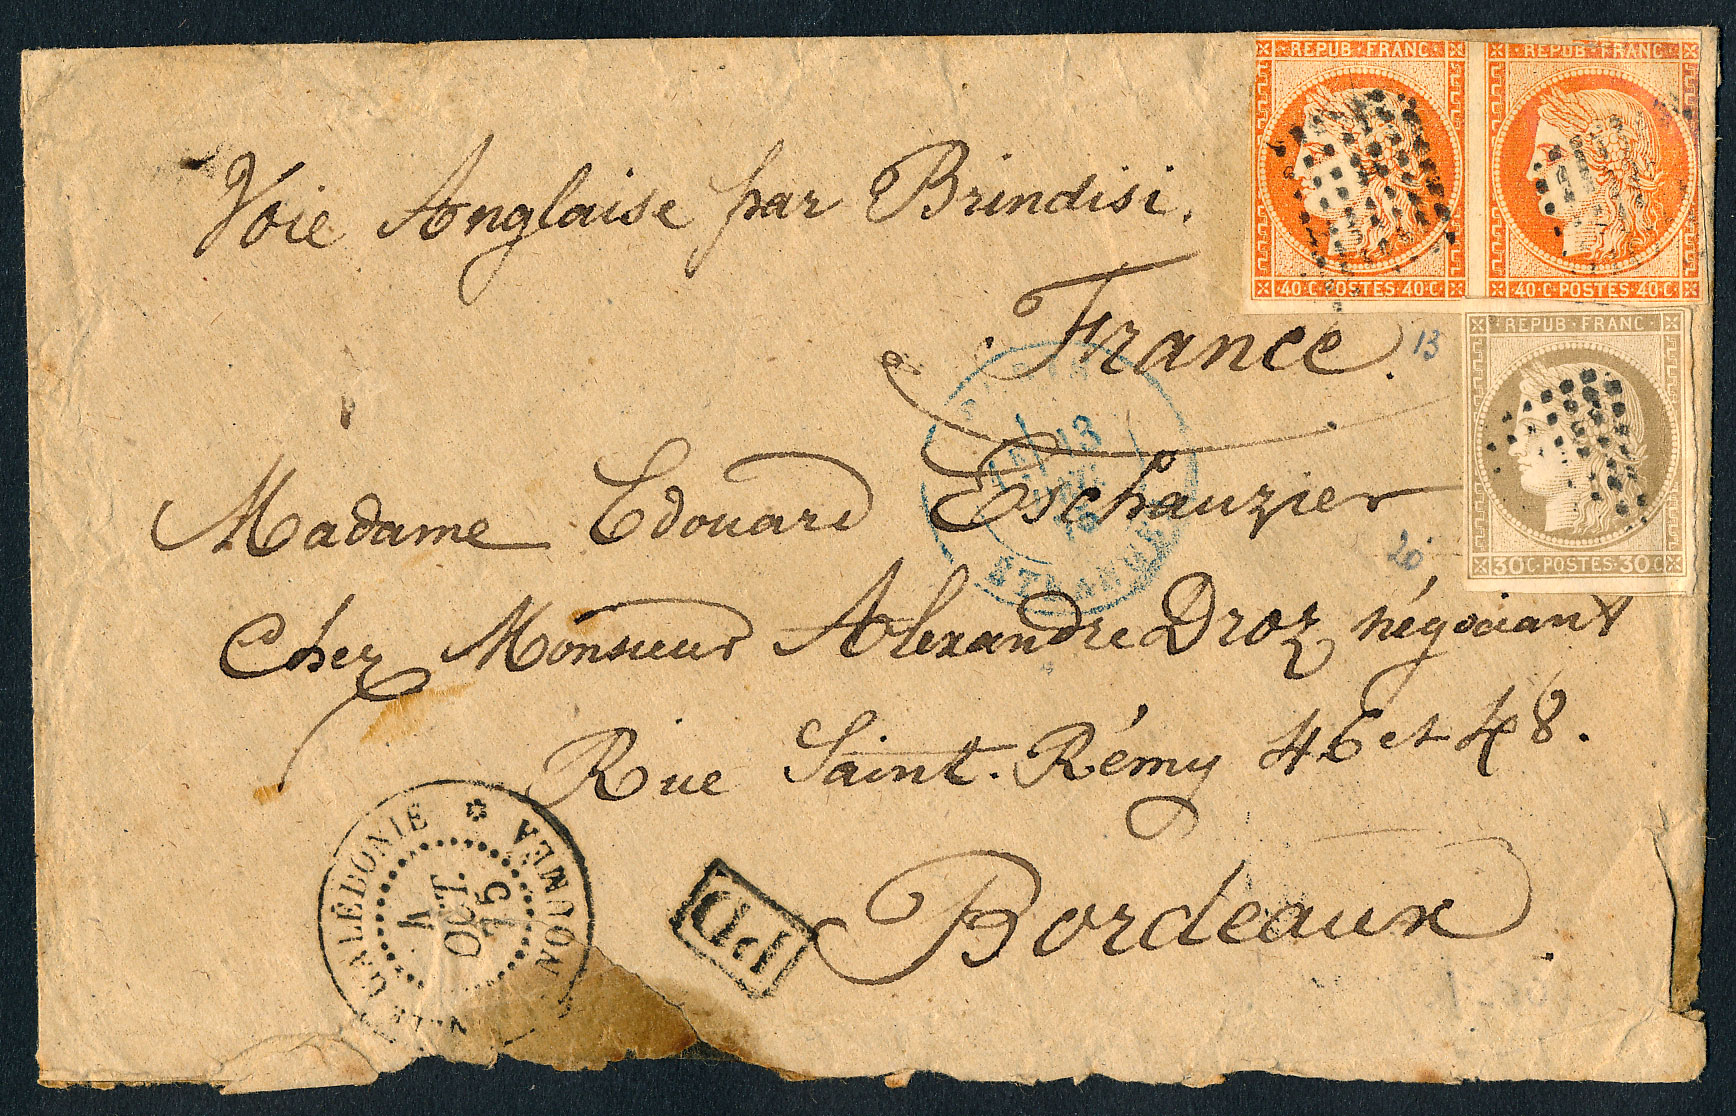 REPUB·FRANC·
REPUB·FRANC·
40·C·POSTES·40·C·
40·C·POSTES·40·C·
Voie Anglaise par Brindisi.
France.
13
REPUB·FRANC·
30C·POSTES·30C
13
75
ETRANG
Madame Edouard Eschauzier
20
Chez Monsieur Alexandre Droz négociant
Rue Saint-Rémy 46 et 48.
Bordeaux
CALÉDONIE
NOUMEA
4
OCT.
75
PD